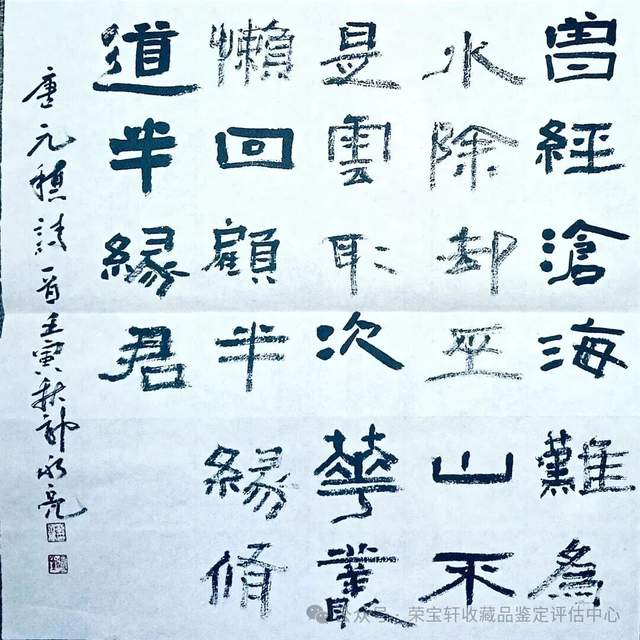 曾經滄海難為
水除却巫山不
是雲取次華叢
懶回顧半緣修
道半緣君
唐元稹詩一首壬寅秋永亮
公众号·荣宝轩收藏品鉴定评估中心